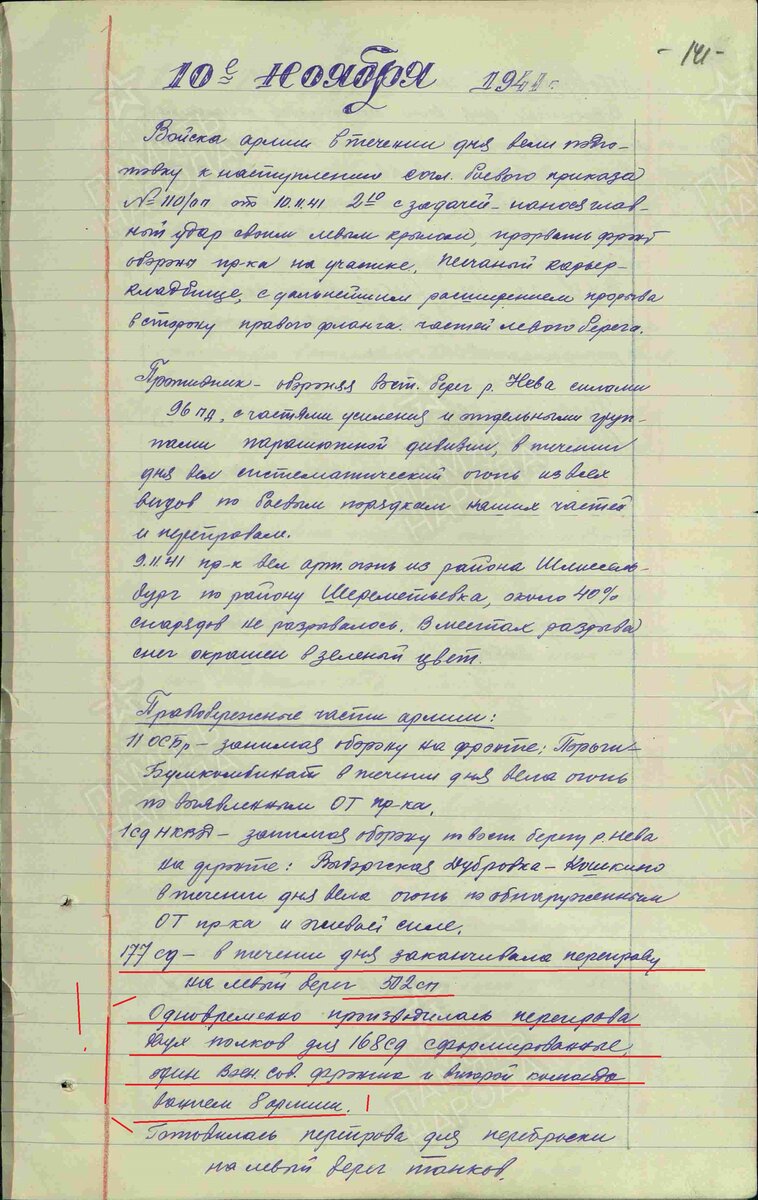 - 141 -
10е ноября 1941 г.
Войска армии в течении дня вели подго-
товку к наступлению согл. боевого приказа
№ 110/оп от 10.11.41 2°° с задачей - нанося глав-
ный удар своим левым крылом, прорвать фронт
обороны пр-ка на участке. Песчаный карьер-
кладбище, с дальнейшим расширением прорыва
в сторону правого фланга частей левого берега.
Противник - обороняя вост. берег р. Нева силами
96 пд, с частями усиления и отдельными груп-
пами парашютной дивизии, в течении
дня вел систематический огонь из всех
видов по боевым порядкам наших частей
и переправам.
9.11.41 пр-к вел арт. огонь из района Шлиссель-
бург по району Шереметьевка, около 40%
снарядов не разрывалось. В местах разрыва
снег окрашен в зеленый цвет.
Правобережные части армии:
11 ОСБр - занимая оборону на фронте: Пороги-
Бумкомбинат в течении дня вела огонь
по выявленным ОТ пр-ка.
1 сд НКВД - занимая оборону по вост. берегу р. Нева
на фронте: Выборгская Дубровка - Кошкино
в течении дня вела огонь по обнаруженным
ОТ пр-ка и живой силе.
177 сд - в течении дня заканчивала переправу
на левый берег 502 сп
Одновременно производилась переправа
двух полков для 168 сд сформированные,
один Воен. сов. фронта и второй командо
ванием 8 армии.
Готовилась переправа для переброски
на левый берег танков.